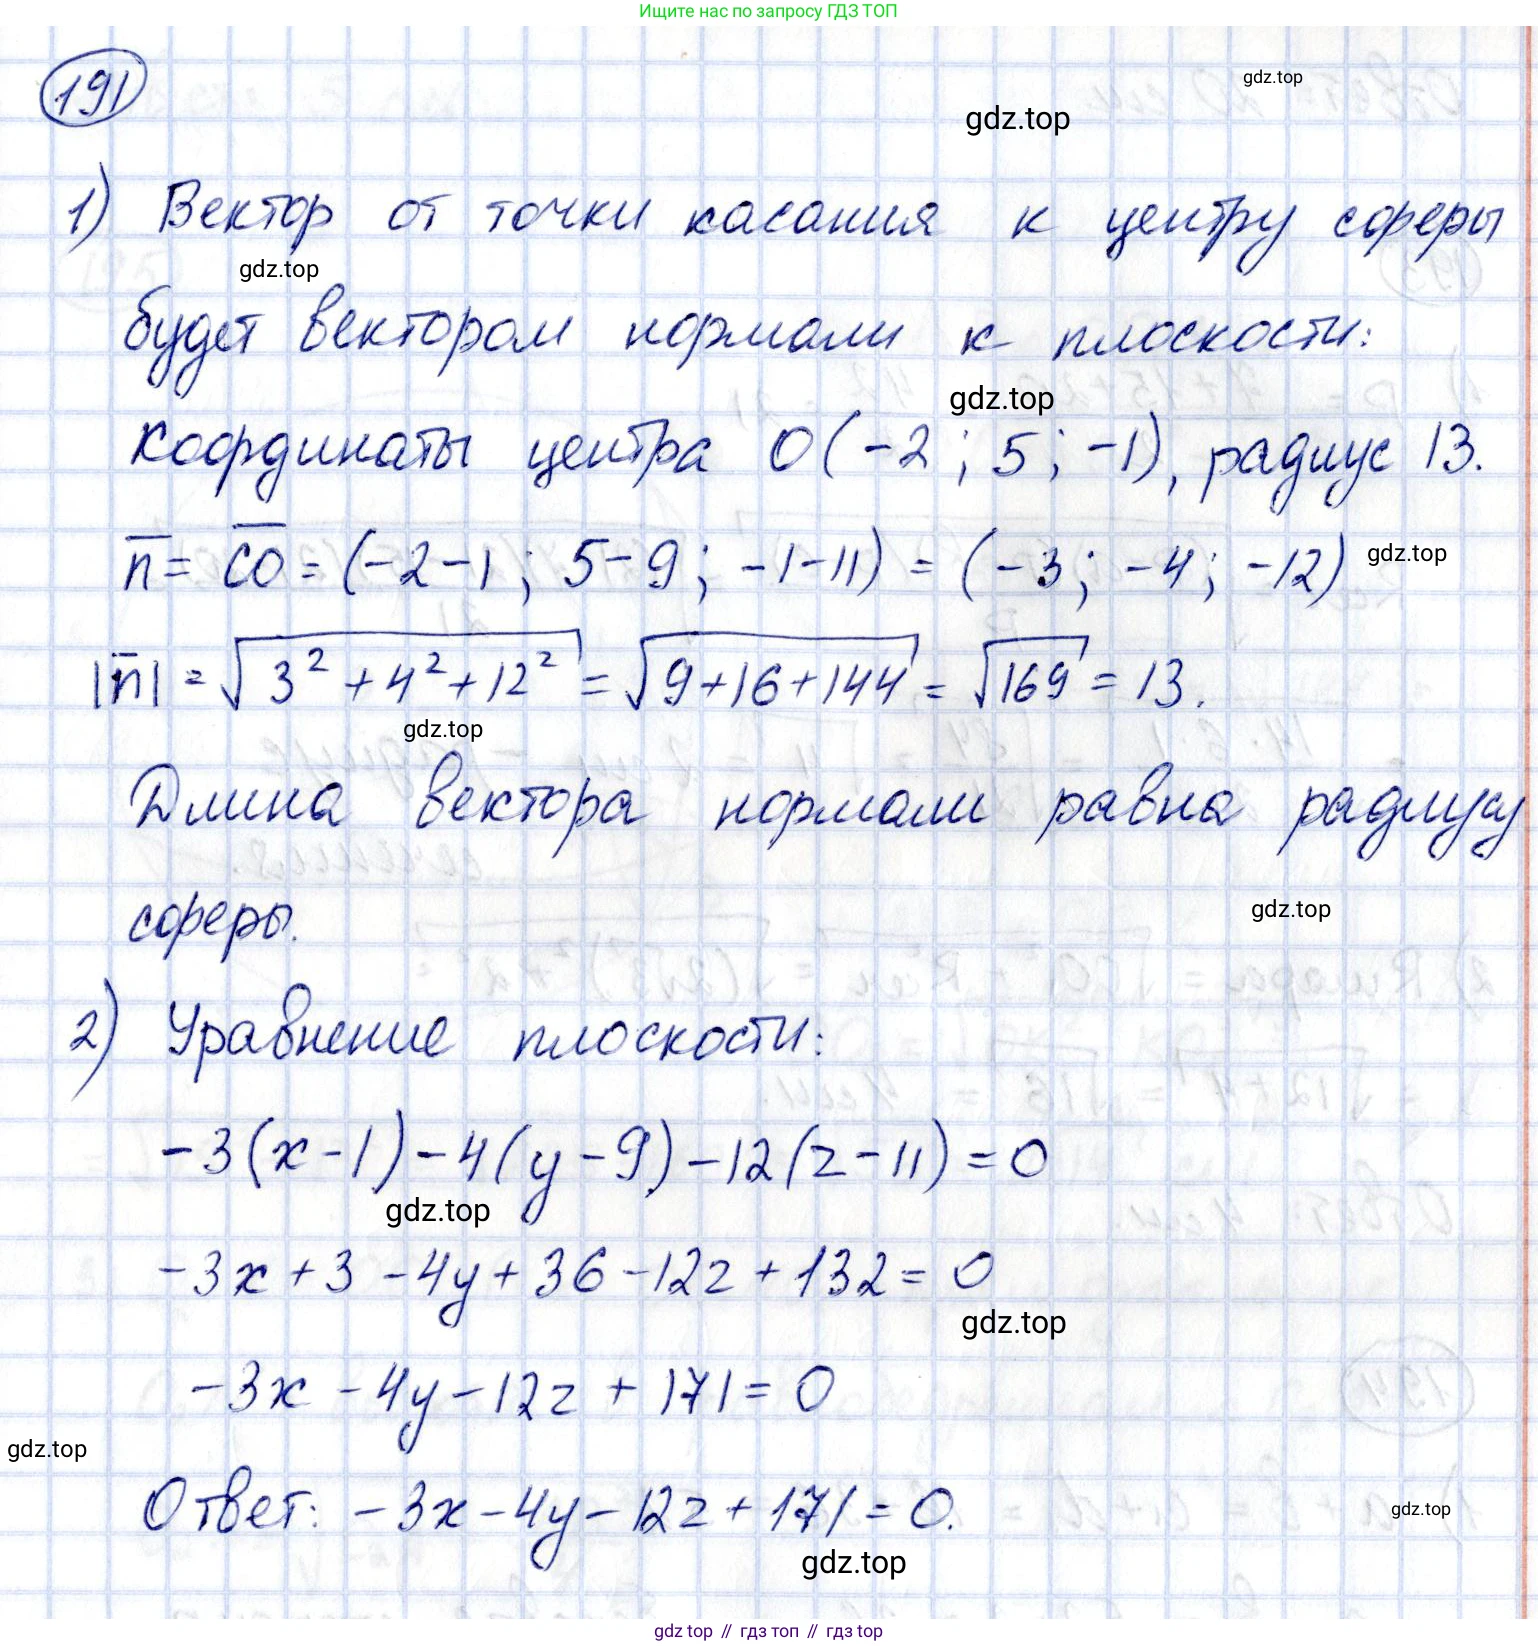 Ищите нас по запросу ГДЗ ТОП
191
gdz.top
gdz.top
1) Вектор от точки касания к центру сферы
gdz.top
будет вектором нормали к плоскости:
gdz.top
координаты центра O(-2; 5; -1), радиус 13.
n̅ = C̅O̅ = (-2-1; 5-9; -1-11) = (-3; -4; -12) gdz.top
|n̅| = √(3² + 4² + 12²) = √(9+16+144) = √169 = 13.
gdz.top
Длина вектора нормали равна радиусу
сферы.
gdz.top
2) Уравнение плоскости:
-3(x-1)-4(y-9)-12(z-11)=0
gdz.top
-3x+3-4y+36-12z+132=0
gdz.top
-3x-4y-12z+171=0
gdz.top
Ответ: -3x-4y-12z+171=0.
gdz.top
gdz.top
gdz.top // гдз топ // гдз top